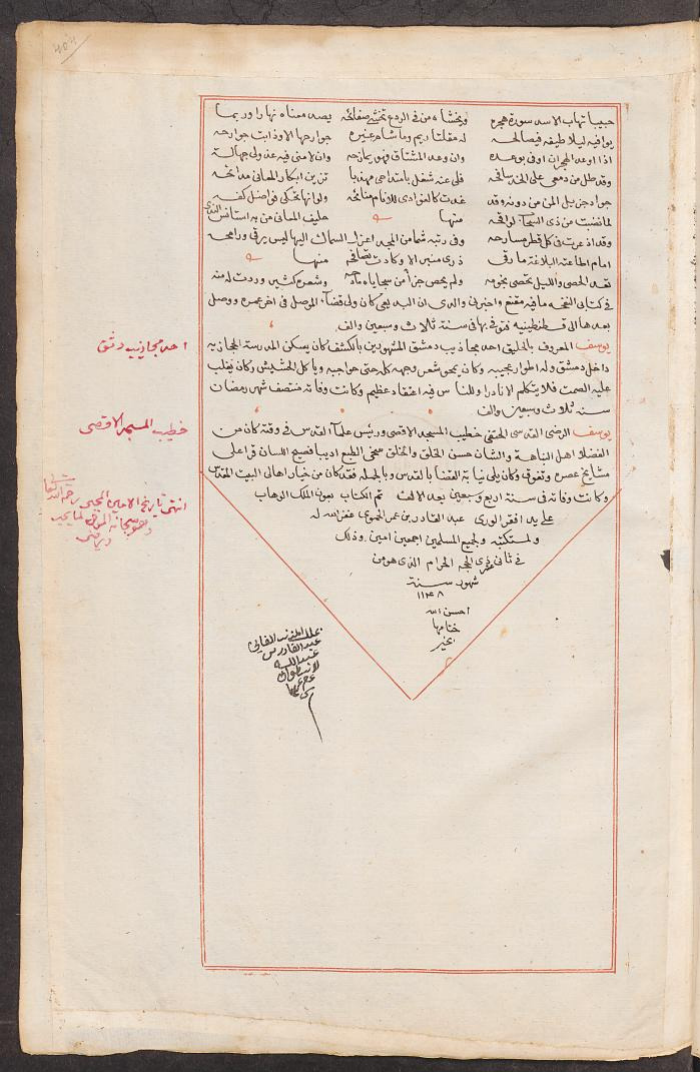 404
حبيبا تهاب الاسد سورة هجره ويخشاه من في الردع تخشى صفائحه يصد معناه نهارا وربما
يوافيه ليلا طيفه فيصالحه له مقلتا ريم وما شام غيره جوارحها الا وذابت جوارحه
اذا اوعد الهجران اوفى بوعده وان وعد المشتاق فهو يمازحه وان لامنى فيه عذولى جهالة
وقد طل من دمعى على الخد سافحه فلى عنه شغل بامتداحى مهذبا تزين ابكار المعانى مدائحه
جواد جزيل المن من دونه وقد غدت كالغوادى للانام منائحه ولو انها تحكى فواضل كفه
لما نضبت من ذى السحاب لواقحه منها حليف المعانى من به استانس الندى
وقد اذعرت فى كل قطر مسارحه وفى رتبة شما من المجد اعزل السماك اليها ليس يرقى ورامحه
امام اطاعته البلاغة ما رقى ذرى منبر الا وكادت تصافحه منها
تعد الحصى والليل تحصى نجومه ولم يحص جزأ من سجاياه مادحه وشعره كثير وردت له منه
فى كتابى النفحه ما فيه مقنع واخبرنى والدى ان البديعى كان ولى قضاء الموصل فى اخر عمره ووصل
بعدها الى قسطنطينيه فتوفى بها فى سنة ثلاث وسبعين والف
يوسف المعروف بالخليق احد مجاذيب دمشق المشهورين بالكشف كان يسكن المدرسة الحجازيه
داخل دمشق وله اطوار عجيبه وكان يمحى شعر وجهه كله حتى حواجبه وياكل الحشيش وكان يغلب
عليه الصمت فلا يتكلم الا نادرا وللناس فيه اعتقاد عظيم وكانت وفاته منتصف شهر رمضان
سنة ثلاث وسبعين والف
يوسف الرضى القدسى الحنفى خطيب المسجد الاقصى ورئيس علماء القدس فى وقته كان من
الفضلا اهل النباهة والشان حسن الخلق والخلق سخى الطبع اديبا فصيح اللسان قرا على
مشايخ عصره وتفوق وكان يلى نيابة القضا بالقدس وبالجمله فقد كان من خيار اهالى البيت المقدس
وكانت وفاته فى سنة اربع وسبعين بعد الالف تم الكتاب بعون الملك الوهاب
على يد افقر الورى عبد القادر بن عمر الحموى غفر الله له
ولمستكتبه ولجميع المسلمين اجمعين امين وذلك
فى ثانى عشرى الحجه الحرام الذى هو من
شهور سنة
١١٣٨
احسن الله
ختامها
بخير
احد مجاذيب دمشق
خطيب المسجد الاقصى
انتهى تاريخ الامين المحبى رحمه الله
عبد القادر